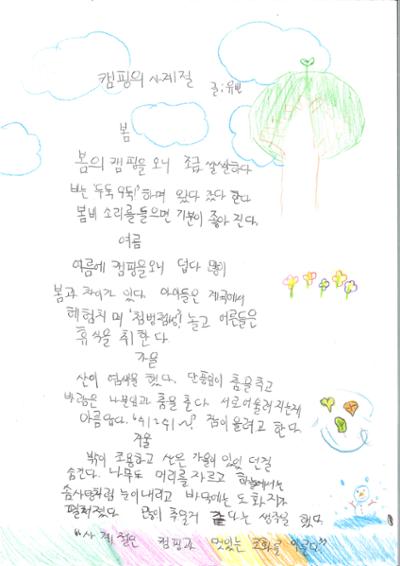 캠핑의 사계절
글:유빈
봄
봄의 캠핑을 오니 조금 쌀쌀하다
비는 '두둑 두둑!' 하며 왔다 갔다 한다
봄비 소리를 들으면 기분이 좋아 진다.
여름
여름에 캠핑을 오니 덥다 많이
봄과 차이가 있다. 아이들은 계곡에서
헤엄치며 '첨벙첨벙!' 놀고 어른들은
휴식을 취한다.
가을
산이 염색을 했다. 단풍잎이 춤을 추고
바람은 나뭇잎과 춤을 춘다. 서로 어울러지는게
아름답다. '쉬잉쉬~!' 잠이 올려고 한다.
겨울
밖이 조용하고 산은 가을의 잎을 던질
숨긴다. 나무도 머리를 자르고 하늘에서는
솜사탕처럼 눈이 내리고 바닥에는 도화지가
펼쳐졌다. 많이 추울거 같다는 생각을 했다.
"사계절은 캠핑과 멋있는 조화를 이룬다."